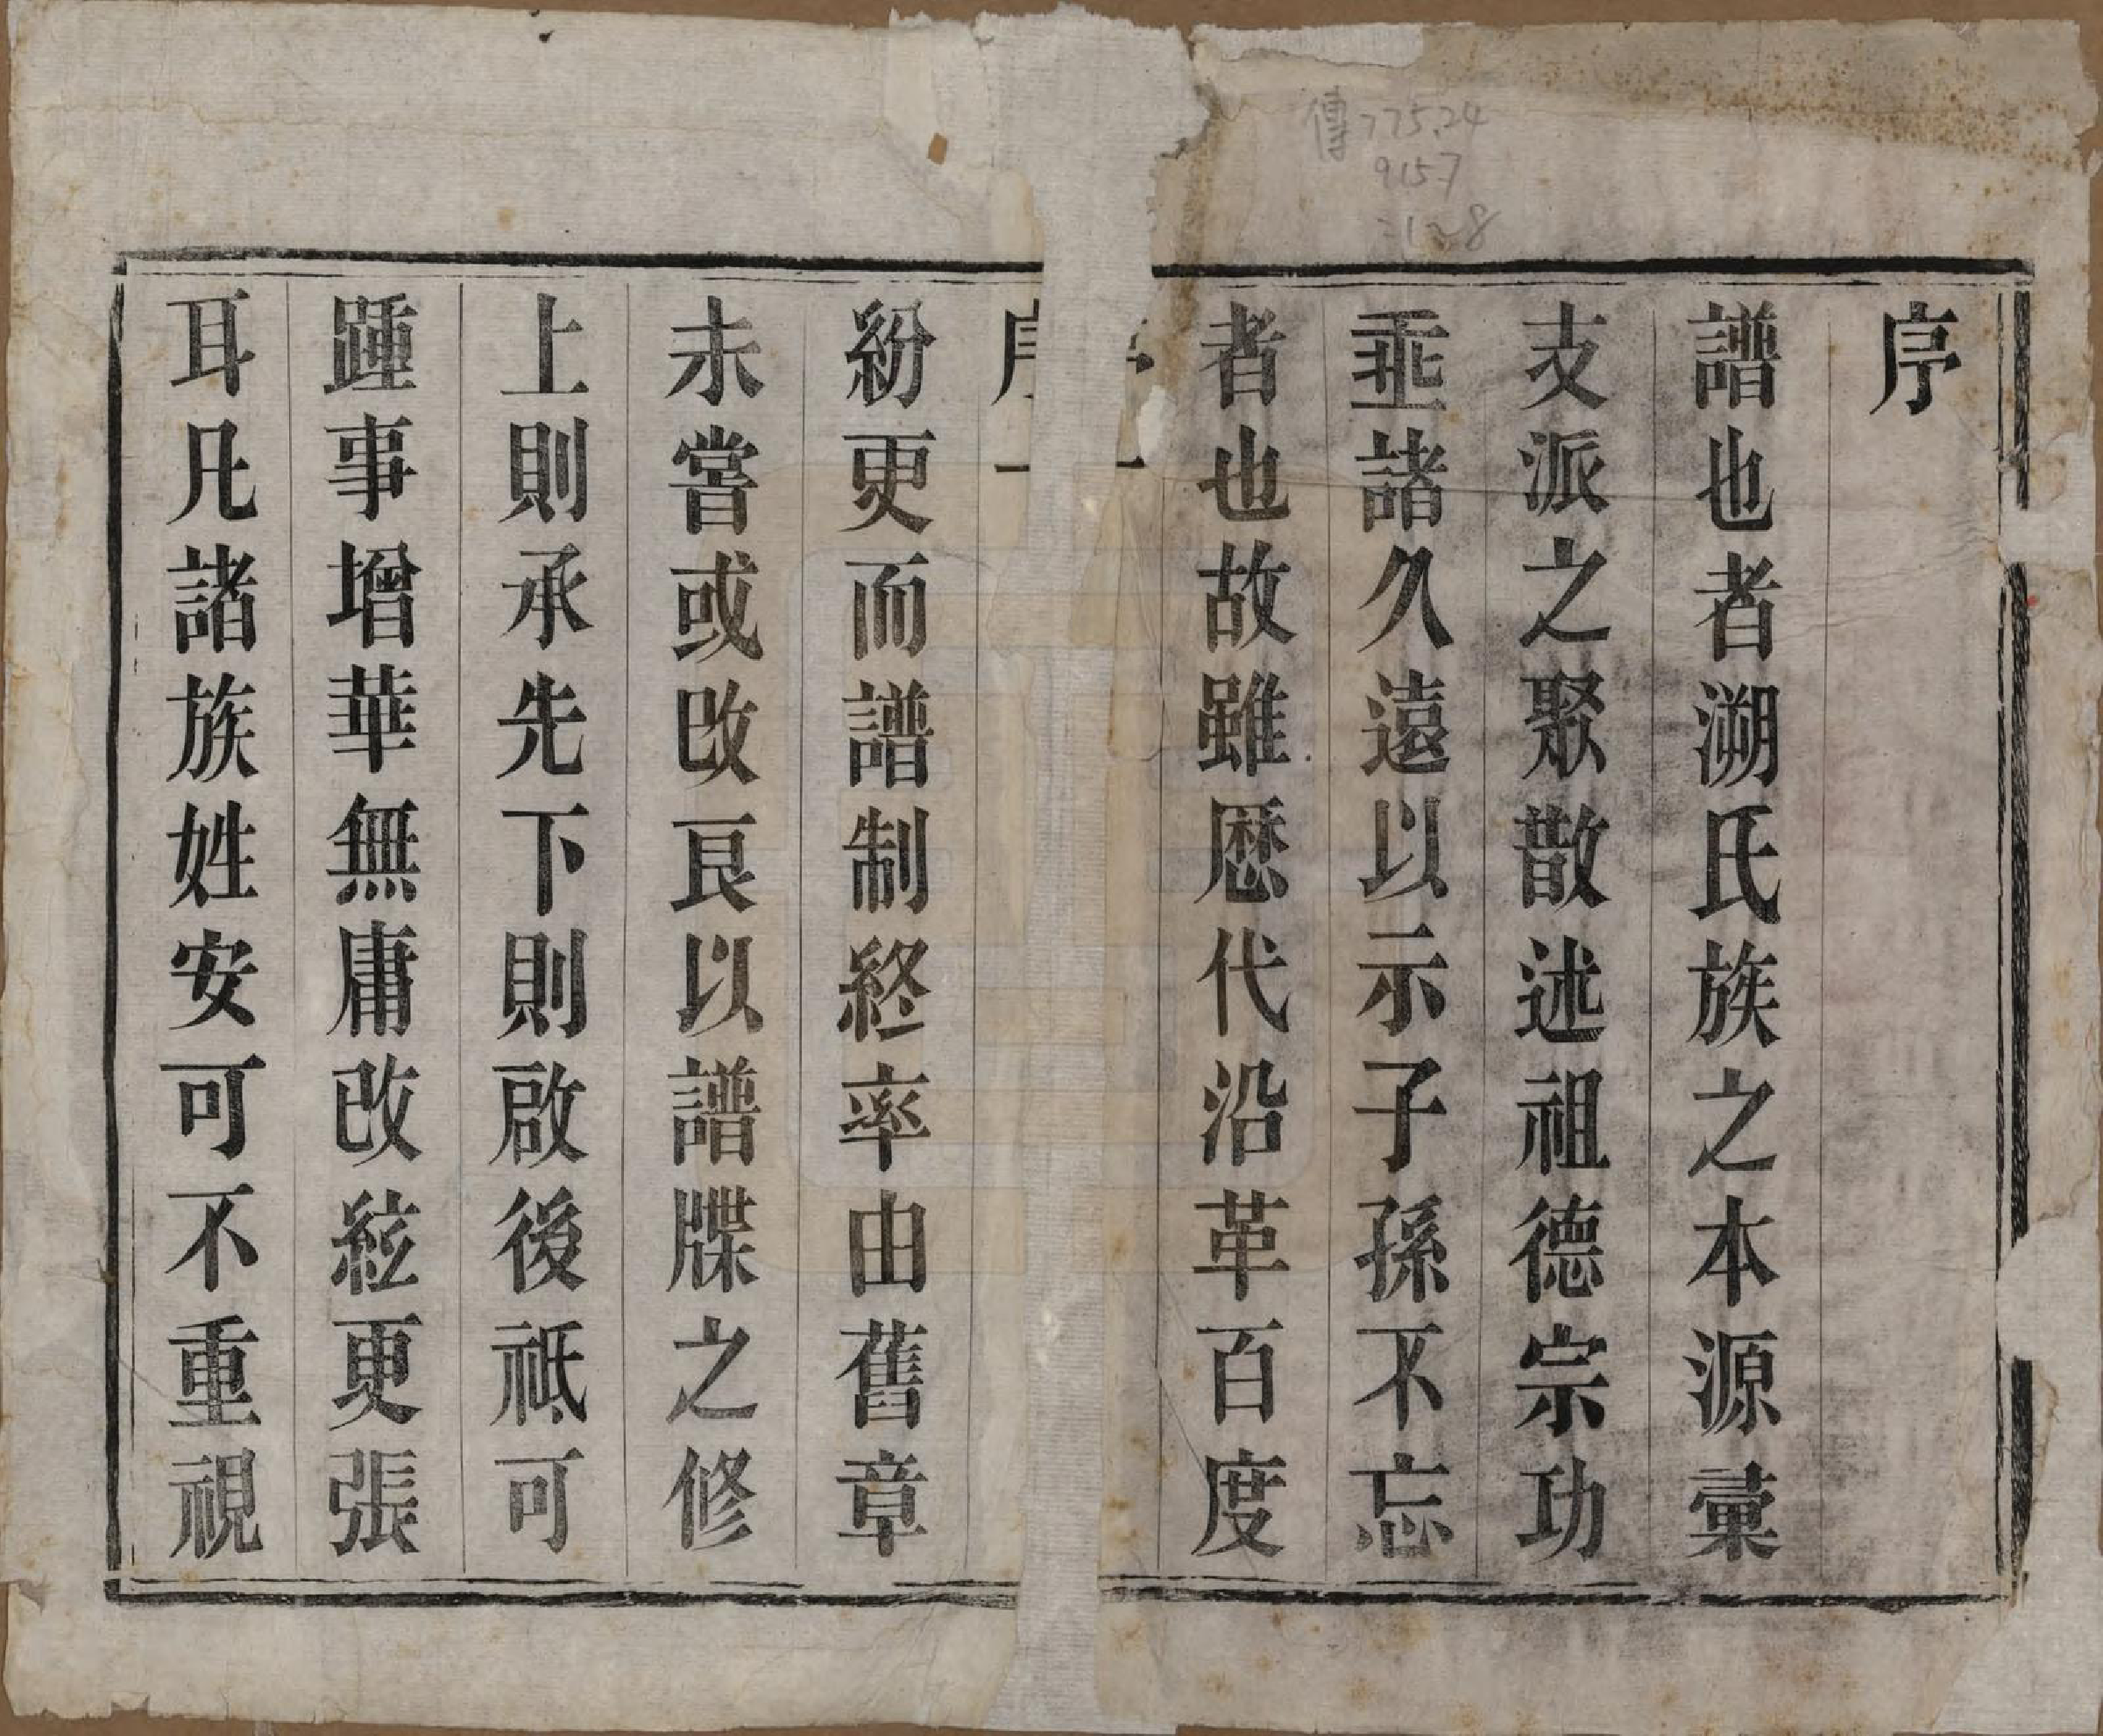 傳775.24
9157
:1~8
序
譜也者溯氏族之本源彙
支派之聚散述祖德宗功
垂諸久遠以示子孫不忘
者也故雖歷代沿革百度
序一
紛更而譜制終率由舊章
未嘗或改良以譜牒之修
上則承先下則啟後祗可
踵事增華無庸改絃更張
耳凡諸族姓安可不重視